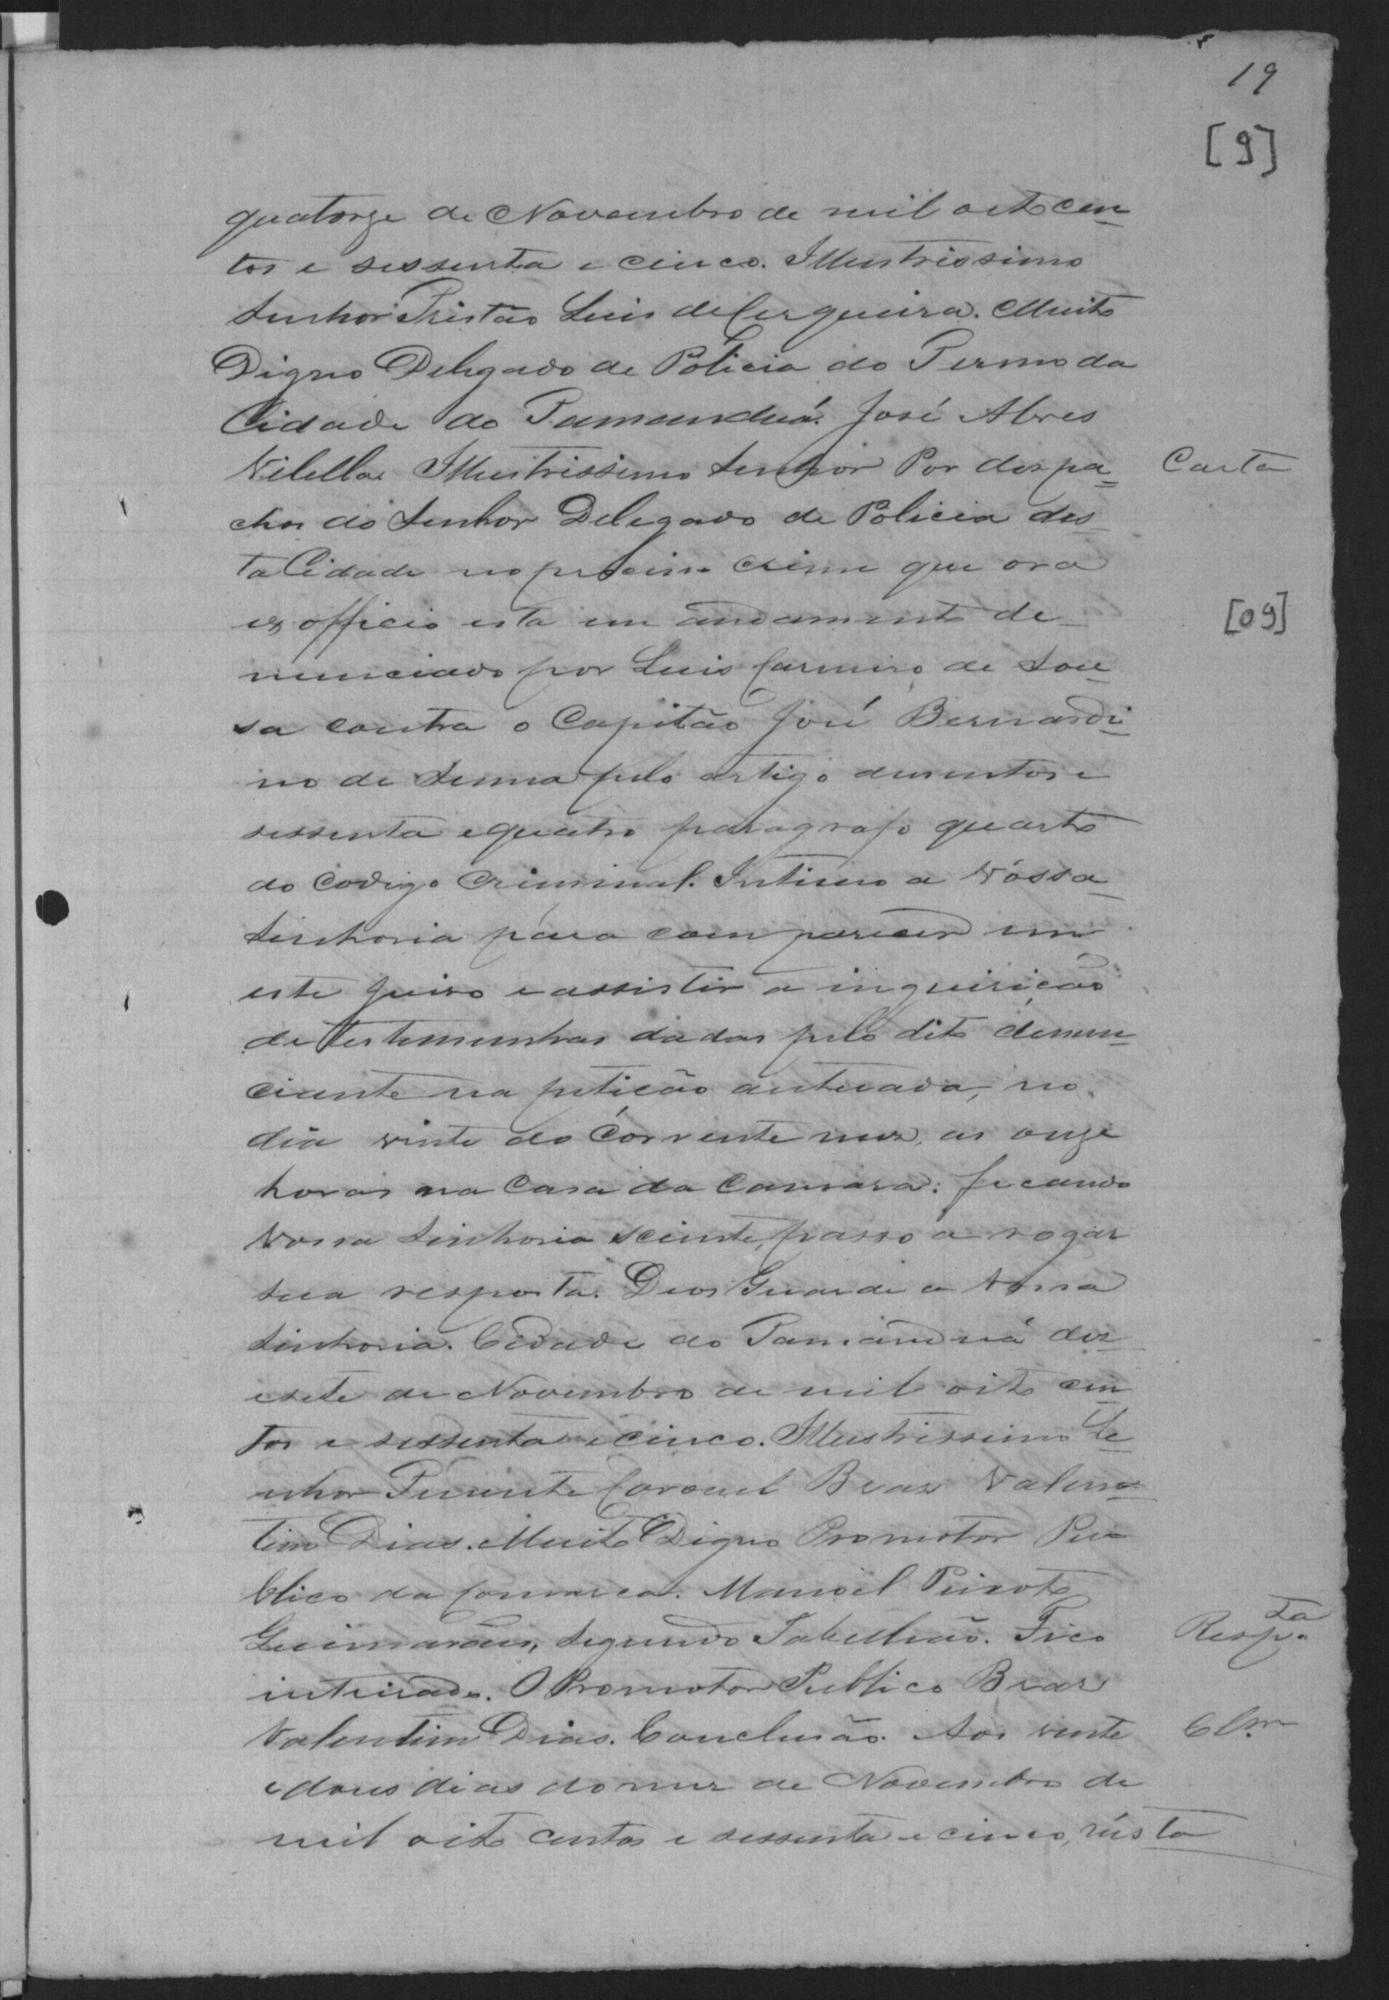 19
[9]
quatorze de Novembro de mil oito cen
tos e sessenta e cinco. Illustrissimo
Senhor Tristão Luis de Cerqueira. Muito
Digno Delegado de Policia do Termo da
Cidade do Tamanduá. José Alves
Vilella. Illustrissimo Senhor Por despa- Carta
chos do Senhor Delegado de Policia des
ta Cidade no processo crime que ora
ex officio esta em andamento de- [09]
nunciado por Luis Carneiro de Sou
sa contra o Capitão José Bernardi
no de Senna pelo artigo dusentos e
sessenta e quatro paragrafo quarto
do codigo criminal. Intimo a Vóssa
Sinhoria pára comparecer em
este juiso e assistir a inquirição
de testemunhas dadas pelo dito denun
ciante na petição autuada, no
dia vinte do córrente mez, as onze
horas na Casa da Camara: ficando
Vossa Sinhoria sciente, passo a rogar
sua resposta. Deos Guarde a Vossa
Sinhoria. Cidade do Tamanduá dez
esete de Novembro de mil oito cen
tos e sessenta e cinco. Illustrissimo Se
nhor Tenente Coronel Bras Valen
tim Dias. Muito Digno Promotor Pu
blico da Comarca. Manoel Peixoto
Guimarães, Segundo Tabellião. Fico Respta
inteirado. O Promotor Publico Bras
Valentim Dias. Conclusão. Aos vinte Clm
e dous dias do mez de Novembro de
mil oito centos e sessenta e cinco, nésta